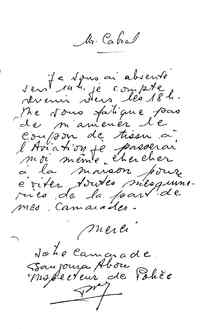 Mr Cabral
Je vous ai absenté
vers 12H. je compte
revenir vers les 18h.
Ne vous fatigue pas
de m'amener le
coupon de tissu à
l'Aviation je passerai
moi même chercher
à la maison pour
éviter toutes mesquine-
ries de la part de
mes Camarades.
Merci
Votre Camarade
Sanjouja Abou
Inspecteur de Police